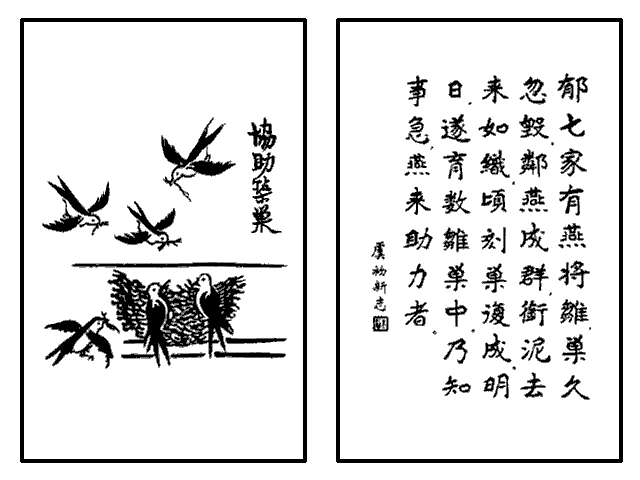 協助築巢
郁七家有燕将雛、巢久
忽毀、鄰燕成群銜泥去
来如織、頃刻巢復成、明
日、遂育数雛巢中、乃知
事急、燕来助力者。
虞初新志